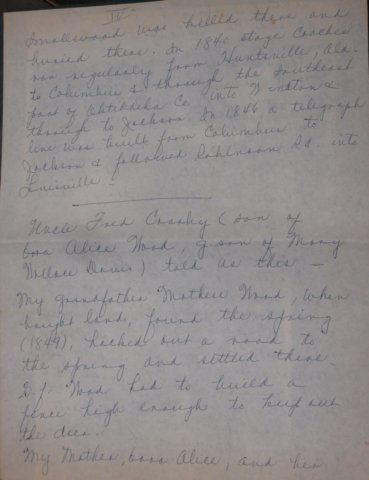 IV
Smallwood was killed there and
buried there. In 1840 stage coaches
ran regularly from Huntsville, Ala.
to Columbus & through the southeast
part of Oktibbeha Co. into Winston &
through to Jackson. In 1846 a telegraph
line was built from Columbus to
Jackson & followed Robinson Rd. into
Louisville.
Uncle Fred Crosby (son of
Cora Alice Wood, g son of Mary
Wallace Davis) told us this —
My grandfather Mathew Wood, when
bought land, found the spring
(1849), hacked out a road to
the spring and settled there.
G.J. Wood had to build a
fence high enough to keep out
the deer.
My Mother, Cora Alice, and her